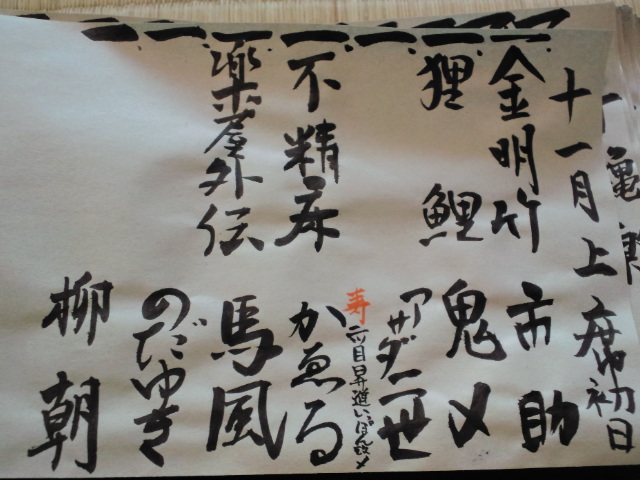 十一月上席初日
一、金明竹 市助
一、狸鯉 鬼〆
一、 アサダ二世
寿 二ツ目昇進いっぽ改メ
一、不精床 かゑる
一、楽屋外伝 馬風
一、 のだゆき
一、 柳朝